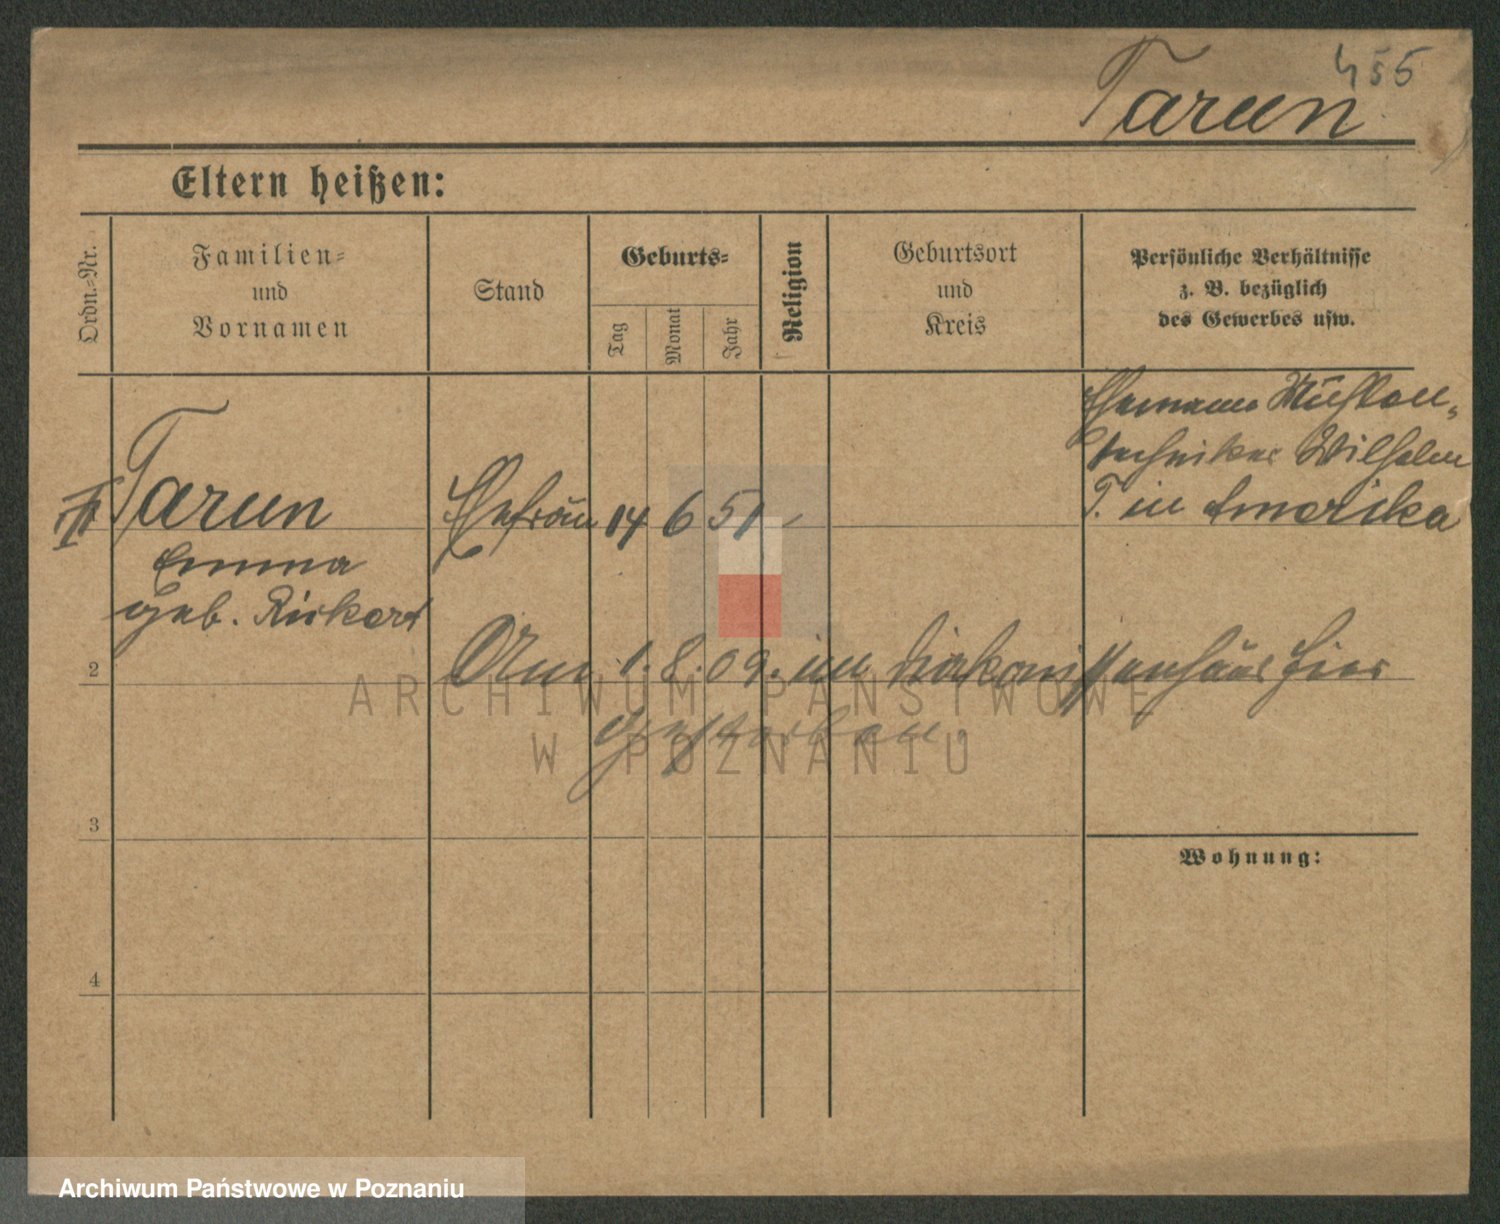 455
Tarun
Eltern heißen:
Ordn.-Nr.
Familien-
und
Vornamen
Stand
Geburts-
Tag
Monat
Jahr
Religion
Geburtsort
und
Kreis
Persönliche Verhältnisse
z. B. bezüglich
des Gewerbes usw.
Ehemann Mühlen-
techniker Wilhelm
T. in Amerika
Tarun Ehefrau 14 6 51
Emma
geb. Rickert
2
Am 1. 8. 09. im Diakonissenhaus hier
gestorben.
3
Wohnung:
4
ARCHIWUM PAŃSTWOWE
W POZNANIU
Archiwum Państwowe w Poznaniu